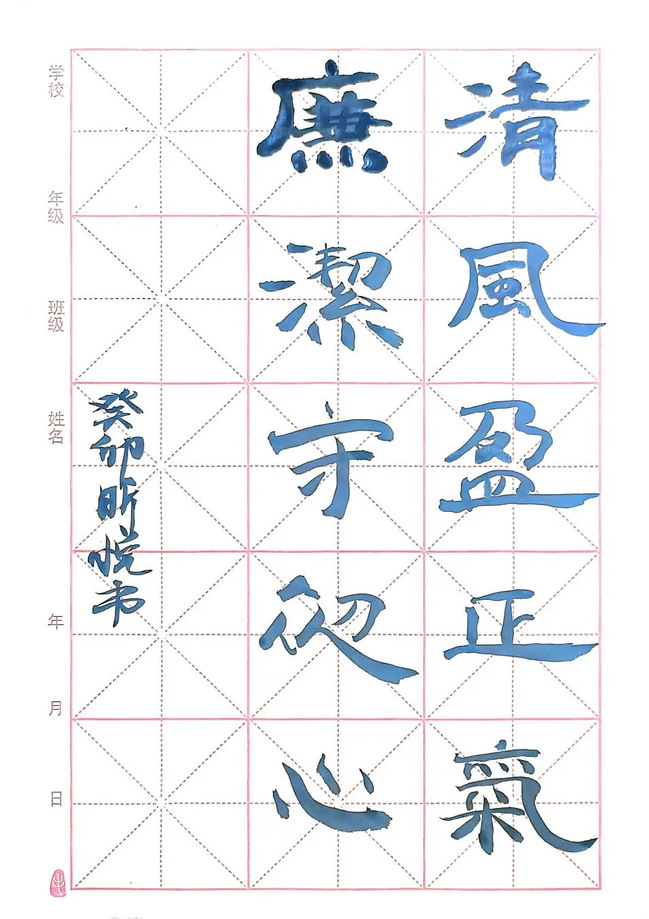 清風盈正氣
廉潔守初心
癸卯昕悦书
学校
年级
班级
姓名
年
月
日